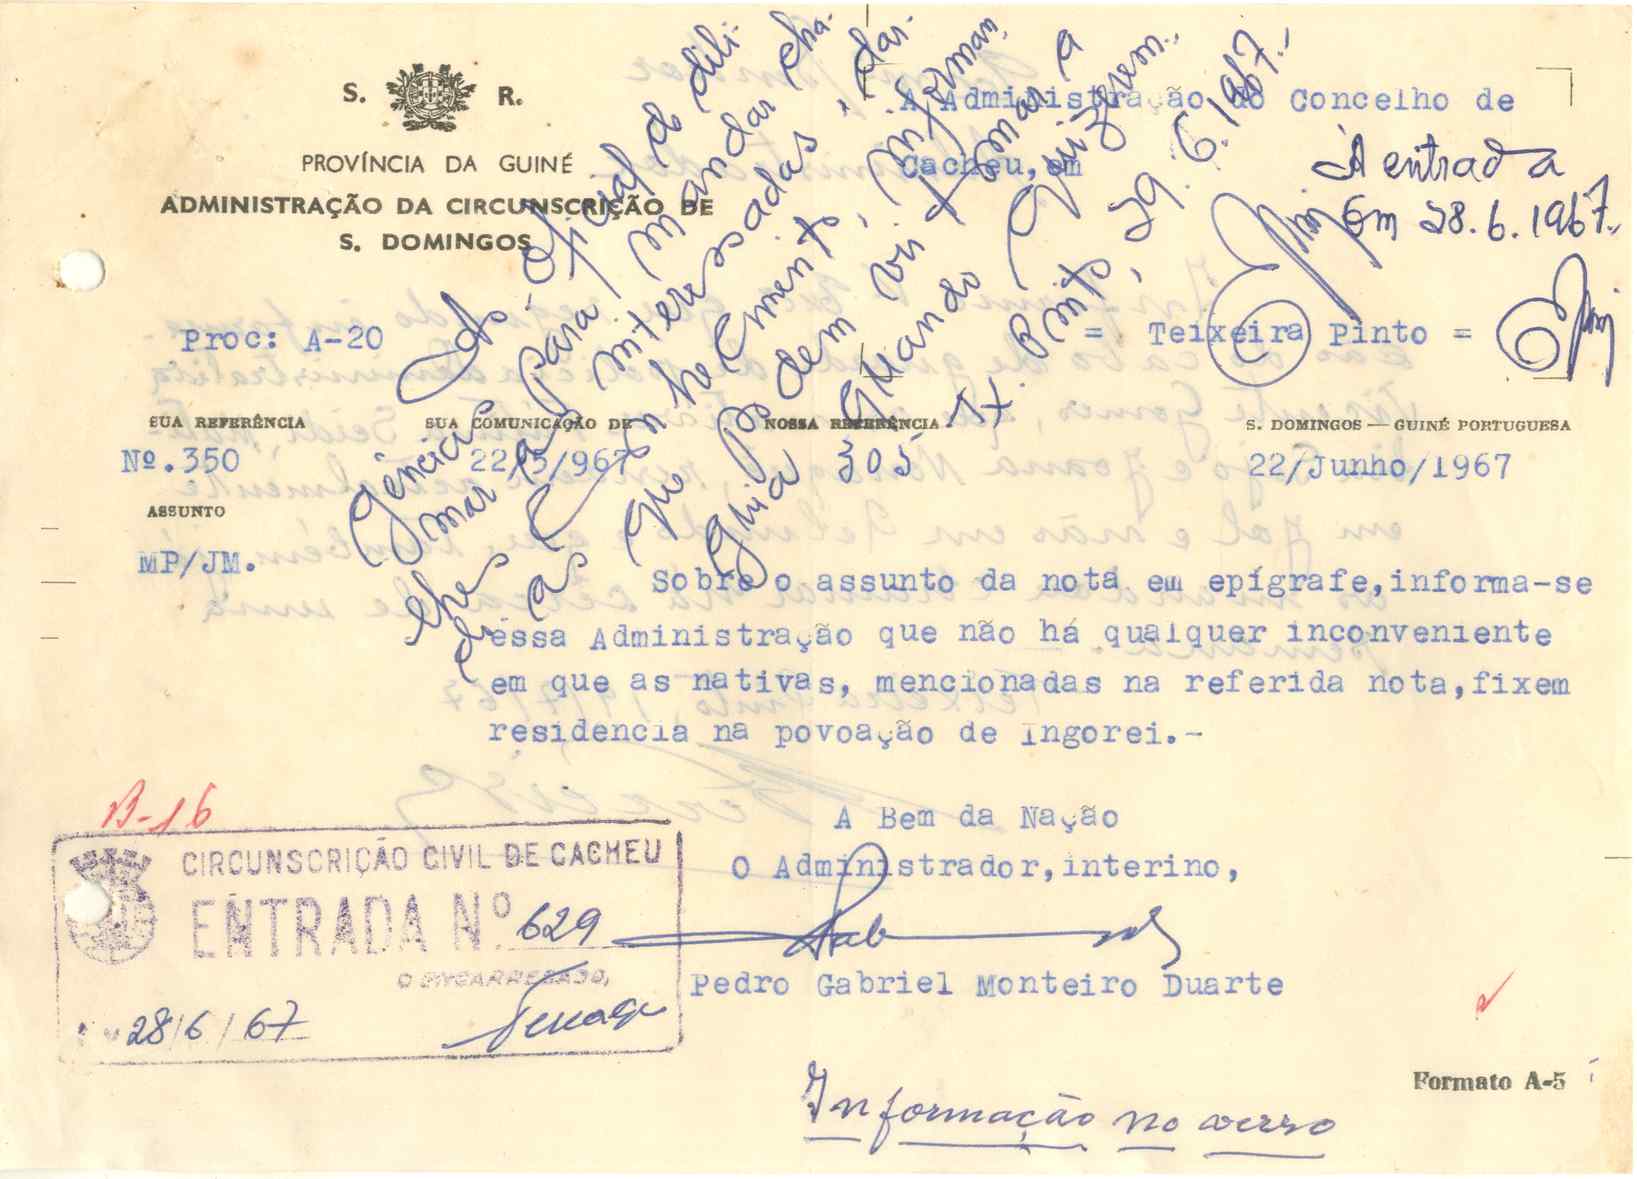 S. R.
PROVÍNCIA DA GUINÉ
ADMINISTRAÇÃO DA CIRCUNSCRIÇÃO DE
S. DOMINGOS
À Administração do Concelho de
Cacheu, em
= Teixeira Pinto =
À entrada
Em 28.6.1967.
Proc: A-20
SUA REFERÊNCIA
Nº.350
SUA COMUNICAÇÃO DE
22/5/967
NOSSA REFERÊNCIA
305
S. DOMINGOS — GUINÉ PORTUGUESA
22/Junho/1967
ASSUNTO
MP/JM.
Ao Oficial de dili-
gências para mandar cha-
mar as interessadas, dar-
lhes conhecimento, informan-
do as que podem vir tomar a
guia quando quizerem.
Tx. Pinto, 29.6.1967.
Sobre o assunto da nota em epígrafe,informa-se
essa Administração que não há qualquer inconveniente
em que as nativas, mencionadas na referida nota,fixem
residencia na povoação de Ingorei.-
A Bem da Nação
O Administrador,interino,
Pedro Gabriel Monteiro Duarte
B-16
CIRCUNSCRIÇÃO CIVIL DE CACHEU
ENTRADA Nº 629
O ENCARREGADO,
28/6/67
Formato A-5
Informação no verso